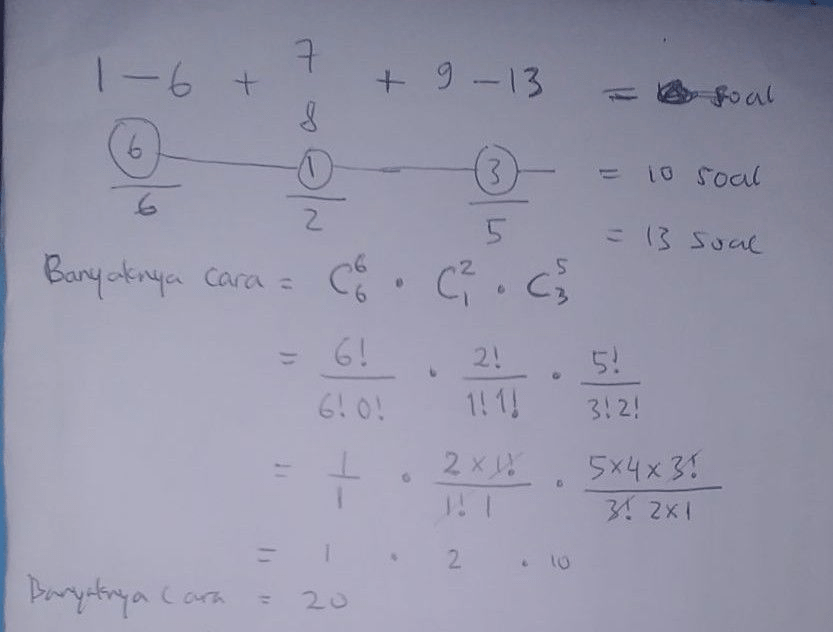 1 - 6 + 7 + 9 - 13 = soal
8
6 1 3 = 10 soal
6 2 5
= 13 soal
Banyaknya cara = C⁶₆ . C²₁ . C⁵₃
= 6!/6!0! . 2!/1!1! . 5!/3!2!
= 1/1 . 2×1!/1! 1 . 5×4×3!/3! 2×1
= 1 . 2 . 10
Banyaknya cara = 20